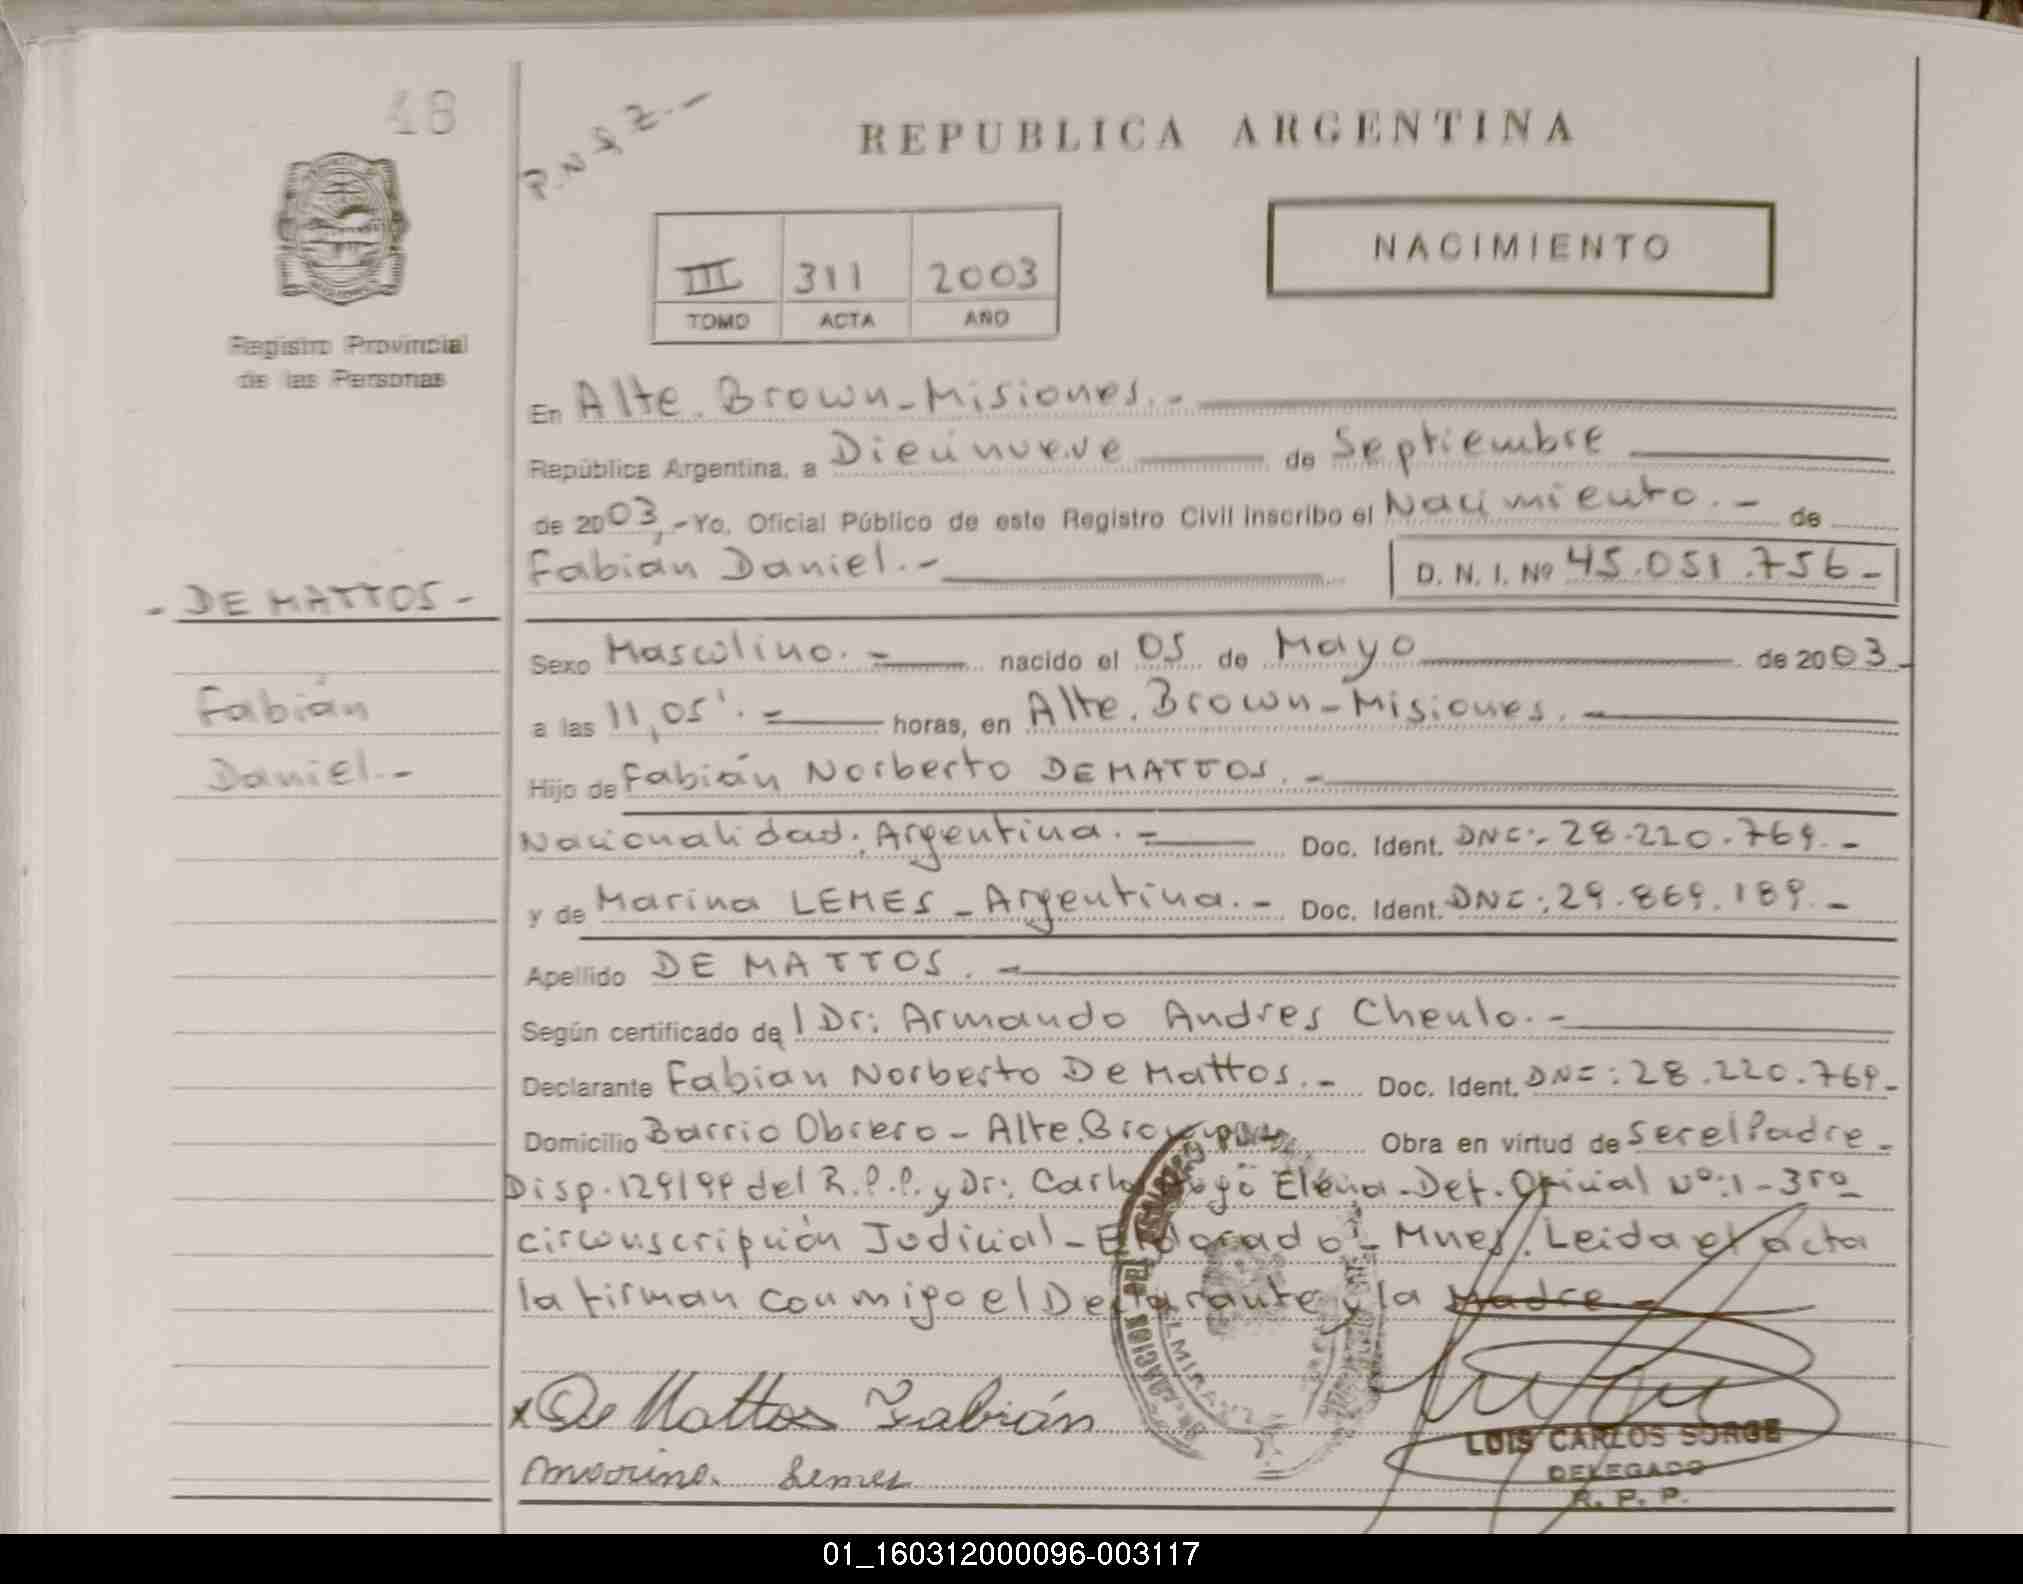 48
P.N.Q Z.-
REPUBLICA ARGENTINA
NACIMIENTO
III 311 2003
TOMO ACTA AÑO
Registro Provincial
de las Personas
En Alte. Brown-Misiones.-
República Argentina, a Diecinueve de Septiembre
de 2003,-Yo, Oficial Público de este Registro Civil inscribo el Nacimiento.- de
Fabián Daniel.- D. N. I. Nº 45.051.756-
- DE MATTOS -
Fabián
Daniel.-
Sexo Masculino.- nacido el 05 de Mayo de 2003.
a las 11,05'.- horas, en Alte. Brown-Misiones.-
Hijo de Fabián Norberto DE MATTOS.-
Nacionalidad: Argentina.- Doc. Ident. DNI:- 28.220.769.-
y de Marina LEMES - Argentina.- Doc. Ident. DNI: 29.869.189.-
Apellido DE MATTOS.-
Según certificado del Dr: Armando Andres Cheulo.-
Declarante Fabian Norberto De Mattos.- Doc. Ident. DNI: 28.220.769-
Domicilio Barrio Obrero - Alte. Brown Obra en virtud de Ser el Padre-
Disp. 129/99 del R.P.P. y Dr: Carlos Hugo Elena-Def. Oficial Nº:1-3ra
circunscripción Judicial-Eldorado-Mnes. Leida el acta
la firman conmigo el Declarante y la Madre-
x De Mattos Fabián
Marina Lemes
LUIS CARLOS SORGE
DELEGADO
R. P. P.
01_160312000096-003117